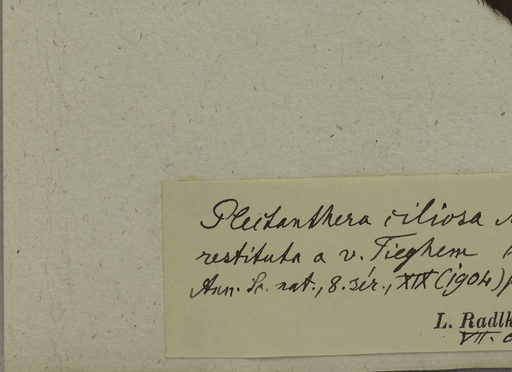 Plectanthera ciliosa
restituta a v. Tieghem
Ann. Sc. nat., 8. sér., XIX (1904)
L. Radlk
VII.